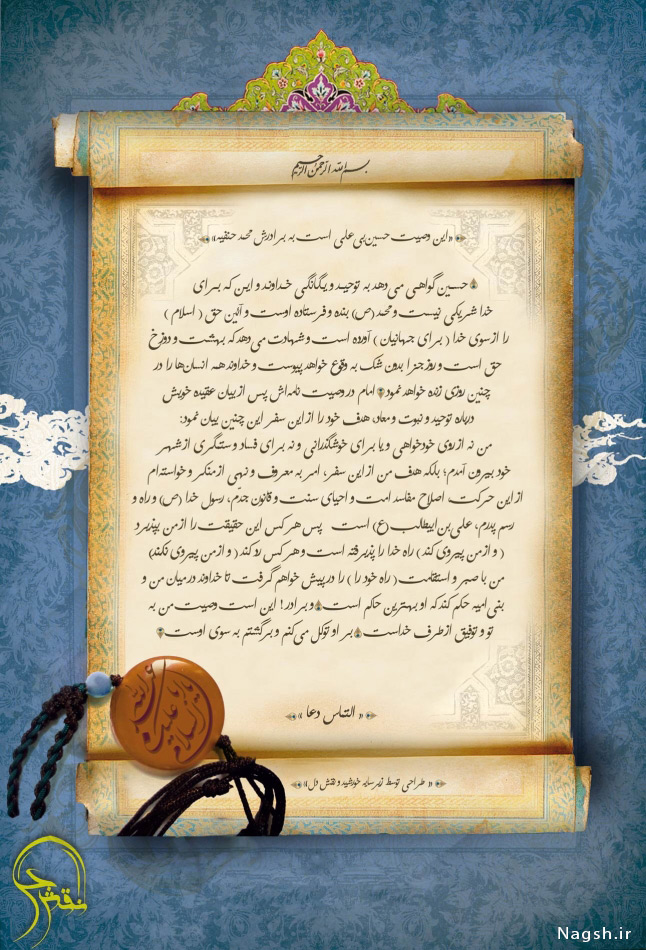 بسم الله الرحمن الرحیم
«این وصیت حسین بی علی است به برادرش محمد حنفیه»
حسین گواهی می دهد به توحید و یگانگی خداوند و این که برای
خدا شریکی نیست و محمد (ص) بنده و فرستاده اوست و آئین حق ( اسلام )
را از سوی خدا ( برای جهانیان ) آورده است و شهادت می دهد که بهشت و دوزخ
حق است و روز جزا بدون شک به وقوع خواهد پیوست و خداوند همه انسان‌ها را در
چنین روزی زنده خواهد نمود امام در وصیت نامه‌اش پس از بیان عقیده خویش
درباره توحید و نبوت و معاد، هدف خود را از این سفر این چنین بیان نمود:
من نه از روی خودخواهی و یا برای خوشگذرانی و نه برای فساد و ستمگری از شهر
خود بیرون آمدم؛ بلکه هدف من از این سفر، امر به معروف و نهی از منکر و خواسته‌ام
از این حرکت، اصلاح مفاسد امت و احیای سنت و قانون جدّم، رسول خدا (ص) و راه و
رسم پدرم، علی بن ابیطالب (ع) است پس هر کس این حقیقت را از من بپذیرد
( و از من پیروی کند ) راه خدا را پذیرفته است و هر کس رد کند ( و از من پیروی نکند)
من با صبر و استقامت ( راه خود را ) را در پیش خواهم گرفت تا خداوند در میان من و
بنی امیه حکم کند که او بهترین حکم است و برادر! این است وصیت من به
تو و توفیق از طرف خداست بر او توکل می کنم و برگشتم به سوی اوست
« التماس دعا »
« طراحی توسط زیر سایه خورشید و نقش دل»
Nagsh.ir